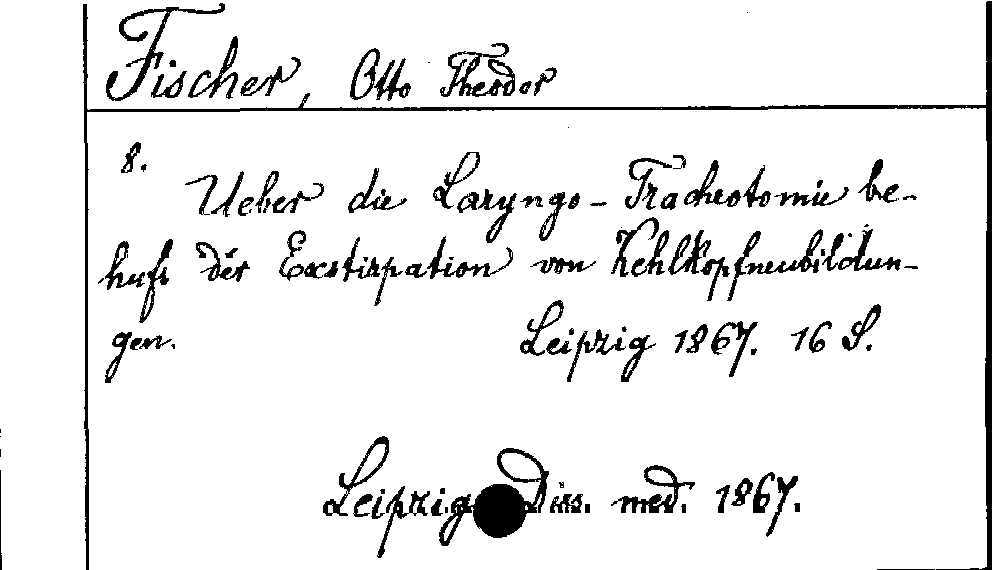 Fischer, Otto Theodor
8.
Ueber die Laryngo-Tracheotomie be-
hufs der Exstirpation von Kehlkopfneubildun-
gen.
Leipzig 1867. 16 S.
Leipzig Diss. med. 1867.